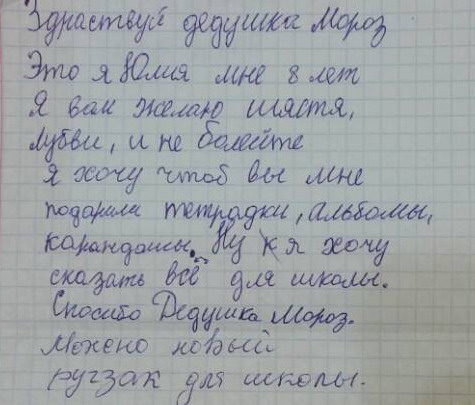 Здраствуй дедушка Мороз
Это я Юлия мне 8 лет
Я вам желаю щястя,
лубви, и не болейте
я хочу чтоб вы мне
подарили тетрадки, альбомы,
карандашы. Ну к я хочу
сказать всё для школы.
Спосибо Дедушка Мороз.
Можено новый
ругзак для школы.